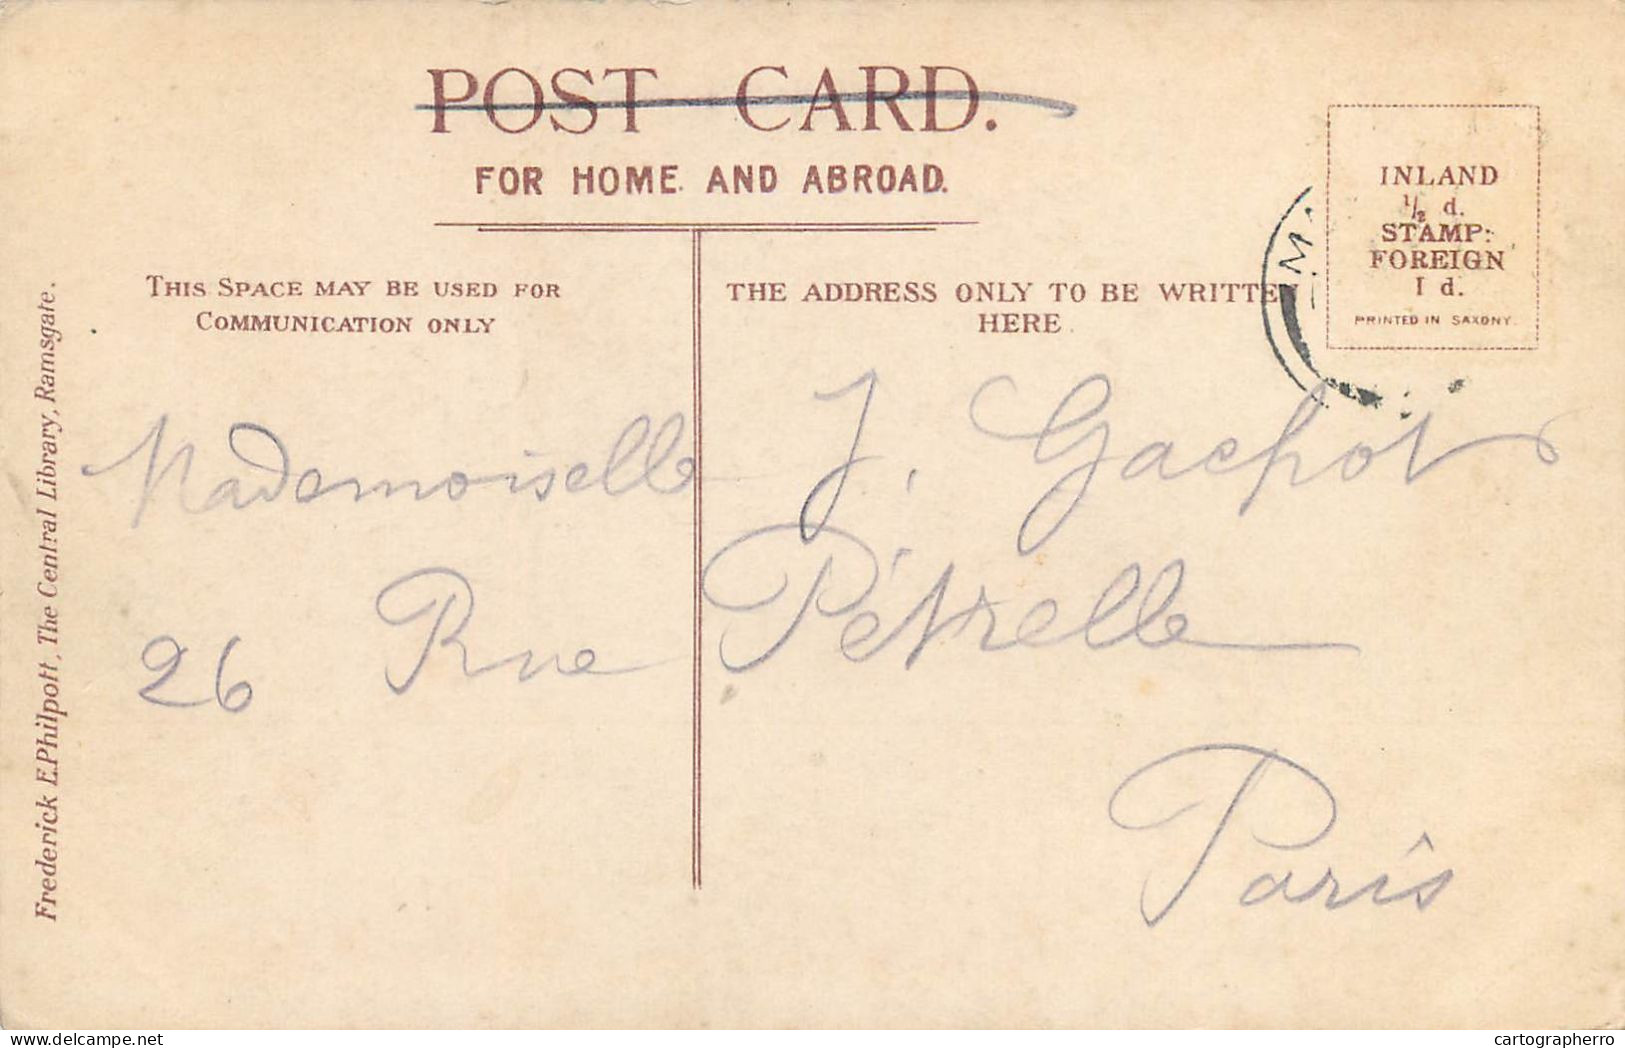 POST CARD.
FOR HOME AND ABROAD.
INLAND
½ d.
STAMP:
FOREIGN
1 d.
PRINTED IN SAXONY.
THIS SPACE MAY BE USED FOR
COMMUNICATION ONLY
THE ADDRESS ONLY TO BE WRITTE
HERE
Mademoiselle J. Gachot
26 Rue Pétrelle
Paris
Frederick E.Philpott, The Central Library, Ramsgate.
delcampe.net
cartographerro